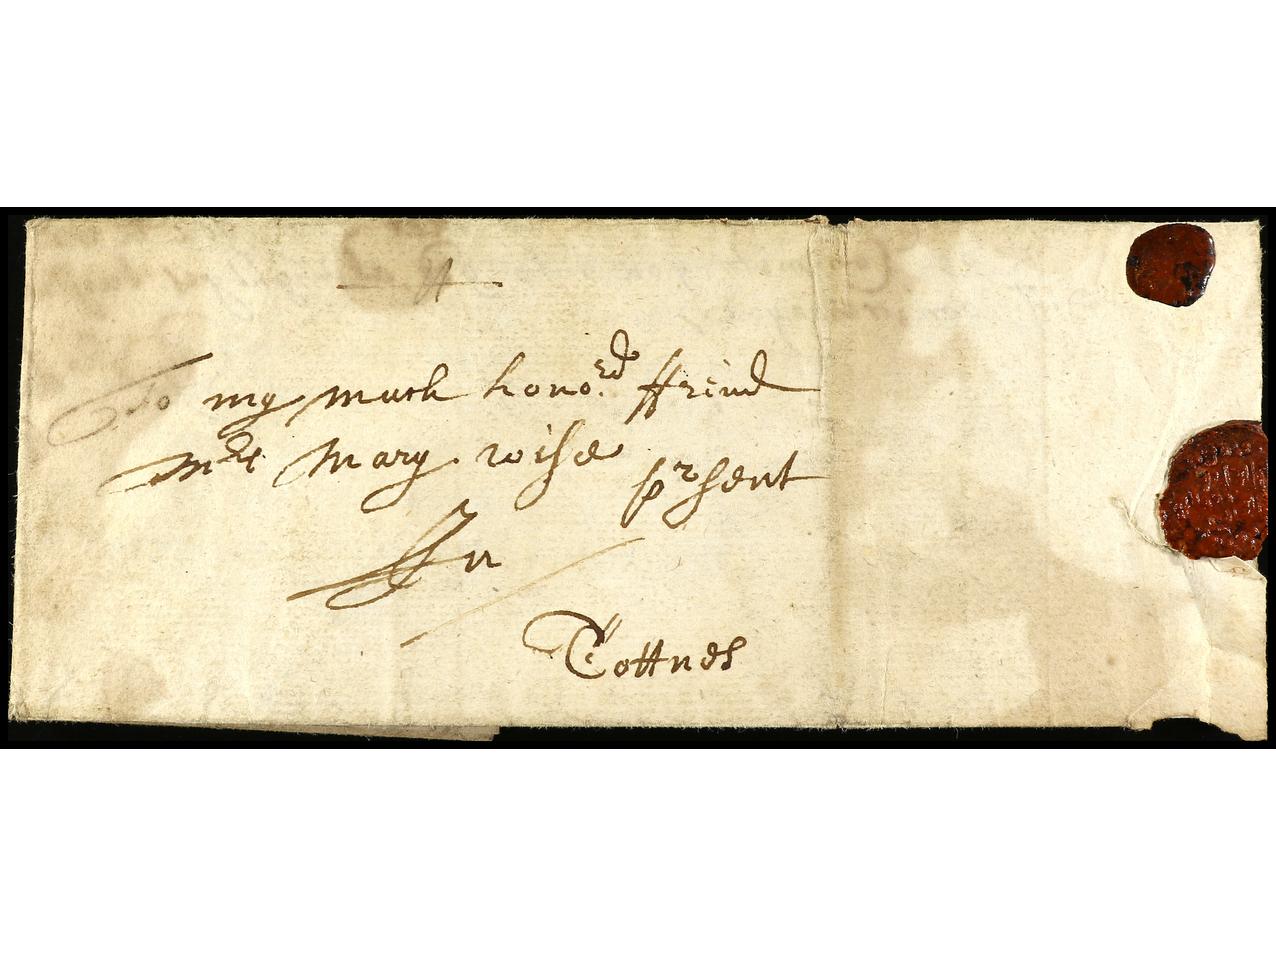 To my much honord ffreind
Mrs Mary Wise prsent
In
Tottnes